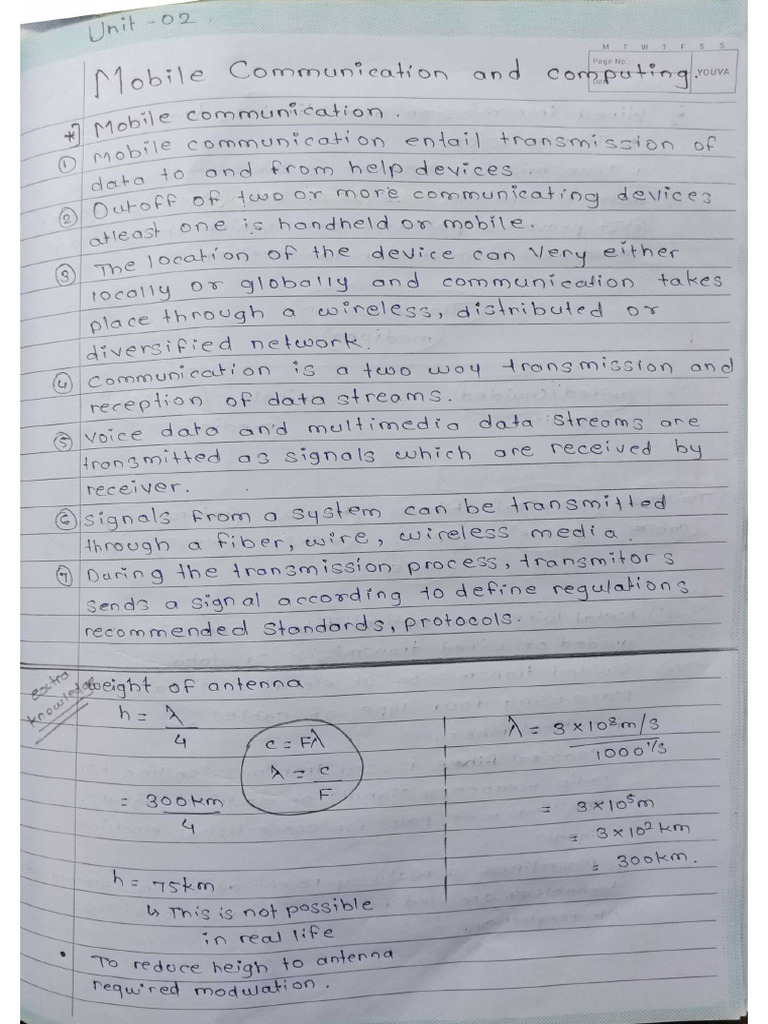 Unit - 02.
M T W T F S S
Page No.:
YOUVA
Mobile Communication and computing.
*] Mobile communication.
① Mobile communication entail transmission of
data to and from help devices.
② Outoff of two or more communicating devices
atleast one is handheld or mobile.
③ The location of the device can very either
locally or globally and communication takes
place through a wireless, distributed or
diversified network.
④ communication is a two way transmission and
reception of data streams.
⑤ voice data and multimedia data streams are
transmitted as signals which are received by
receiver.
⑥ signals from a system can be transmitted
through a fiber, wire, wireless media.
⑦ During the transmission process, transmitors
sends a signal according to define regulations
recommended standards, protocols.
extra
knowledge
weight of antenna
h = λ/4
= 300km/4
h = 75km
↳ This is not possible
in real life
c = Fλ
λ = c/F
λ = 3×10⁸m/s / 1000 1/s
= 3×10⁵m
= 3×10² km
= 300km.
• To reduce heigh to antenna
required modulation.